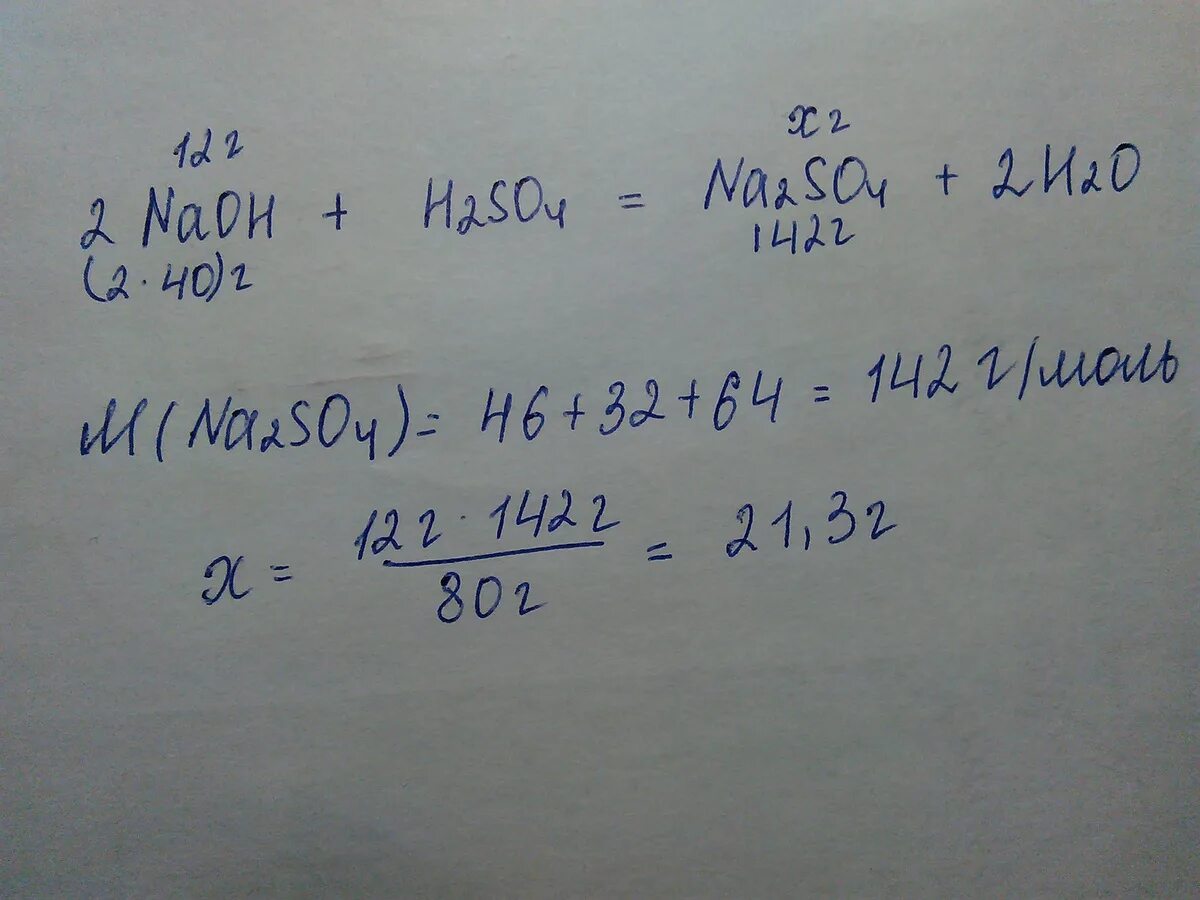 12 г х г
2 NaOH + H2SO4 = Na2SO4 + 2H2O
(2·40)г 142г
M(Na2SO4) = 46+32+64 = 142 г/моль
х = 12г · 142г / 80г = 21,3г